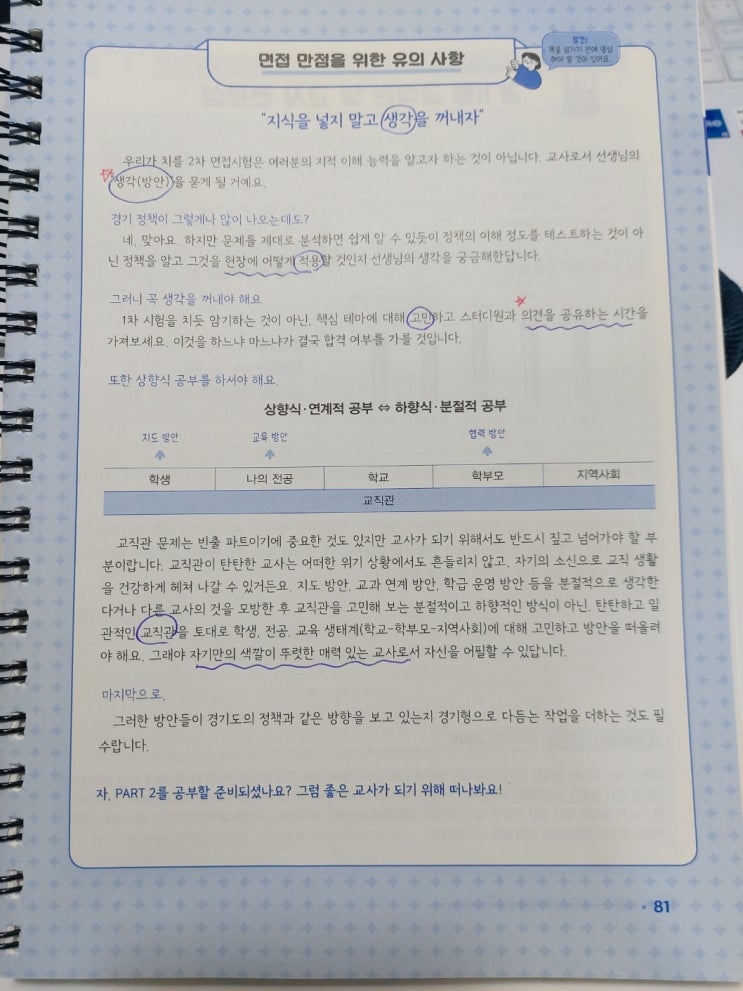 면접 만점을 위한 유의 사항
잠깐!
책을 넘기기 전에 명심
해야 할 것이 있어요.
"지식을 넣지 말고 생각을 꺼내자"
우리가 치를 2차 면접시험은 여러분의 지적 이해 능력을 알고자 하는 것이 아닙니다. 교사로서 선생님의
'생각(방안)'을 묻게 될 거예요.
경기 정책이 그렇게나 많이 나오는데도?
네, 맞아요. 하지만 문제를 제대로 분석하면 쉽게 알 수 있듯이 정책의 이해 정도를 테스트하는 것이 아
닌 정책을 알고 그것을 현장에 어떻게 적용할 것인지 선생님의 생각을 궁금해한답니다.
그러니 꼭 생각을 꺼내야 해요.
1차 시험을 치듯 암기하는 것이 아닌, 핵심 테마에 대해 고민하고 스터디원과 의견을 공유하는 시간을
가져보세요. 이것을 하느냐 마느냐가 결국 합격 여부를 가를 것입니다.
또한 상향식 공부를 하셔야 해요.
상향식·연계적 공부 ⇔ 하향식·분절적 공부
지도 방안 교육 방안 협력 방안
학생 나의 전공 학교 학부모 지역사회
교직관
교직관 문제는 빈출 파트이기에 중요한 것도 있지만 교사가 되기 위해서도 반드시 짚고 넘어가야 할 부
분이랍니다. 교직관이 탄탄한 교사는 어떠한 위기 상황에서도 흔들리지 않고, 자기의 소신으로 교직 생활
을 건강하게 헤쳐 나갈 수 있거든요. 지도 방안, 교과 연계 방안, 학급 운영 방안 등을 분절적으로 생각한
다거나 다른 교사의 것을 모방한 후 교직관을 고민해 보는 분절적이고 하향적인 방식이 아닌, 탄탄하고 일
관적인 교직관을 토대로 학생, 전공, 교육 생태계(학교-학부모-지역사회)에 대해 고민하고 방안을 떠올려
야 해요. 그래야 자기만의 색깔이 뚜렷한 매력 있는 교사로서 자신을 어필할 수 있답니다.
마지막으로,
그러한 방안들이 경기도의 정책과 같은 방향을 보고 있는지 경기형으로 다듬는 작업을 더하는 것도 필
수랍니다.
자, PART 2를 공부할 준비되셨나요? 그럼 좋은 교사가 되기 위해 떠나봐요!
81